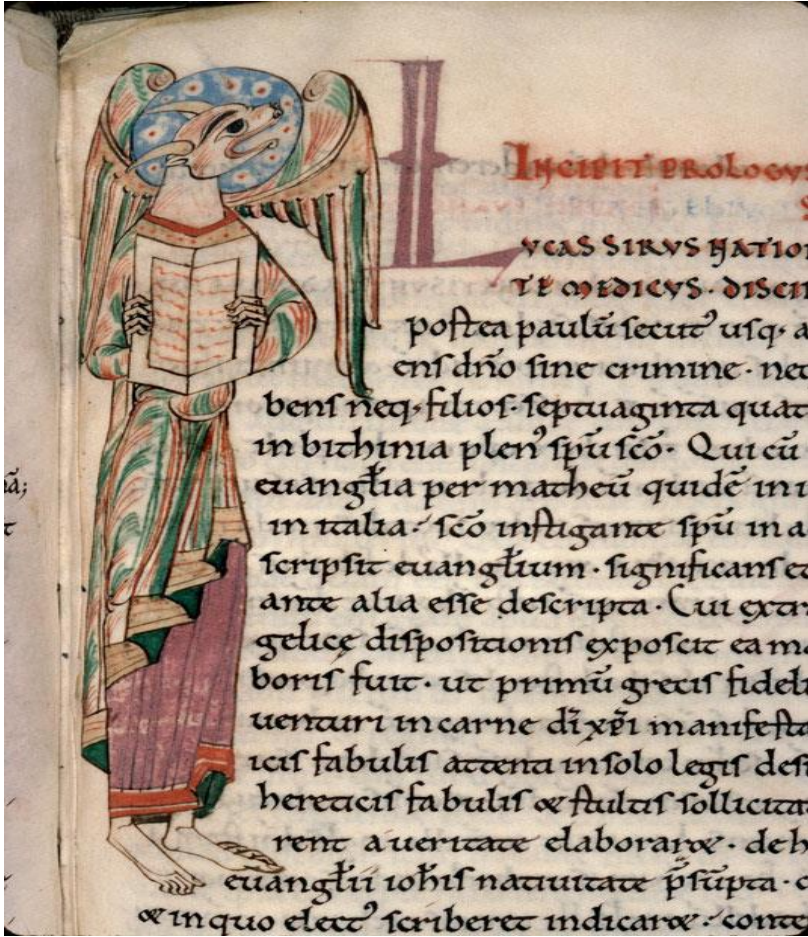 INCIPIT PROLOGVS
LVCAS SIRVS NATIO
TE MEDICVS · DISCI
postea paulū secut᾽ usq; a
ens dño sine crimine · nec
bens neq; filios · septuaginta quat
in bithinia plen᾽ spū scō · Qui cū
euangl̄ia per matheū quidē in i
in italia · scō instigante spū in a
scripsit euangl̄ium · significans et
ante alia esse descripta · Cui extr
gelicę dispositionis exposcit ea m
boris fuit · ut primū grecis fideli
uenturi in carne dī xp̄i manifesta
icis fabulis attenti in solo legis des
hereticis fabulis & stultis sollicita
rent a ueritate elaborar& · de h
euangl̄ii ioh̄is natiuitate p̄sūpta · c
& in quo elect᾽ scriber& indicar& · conte